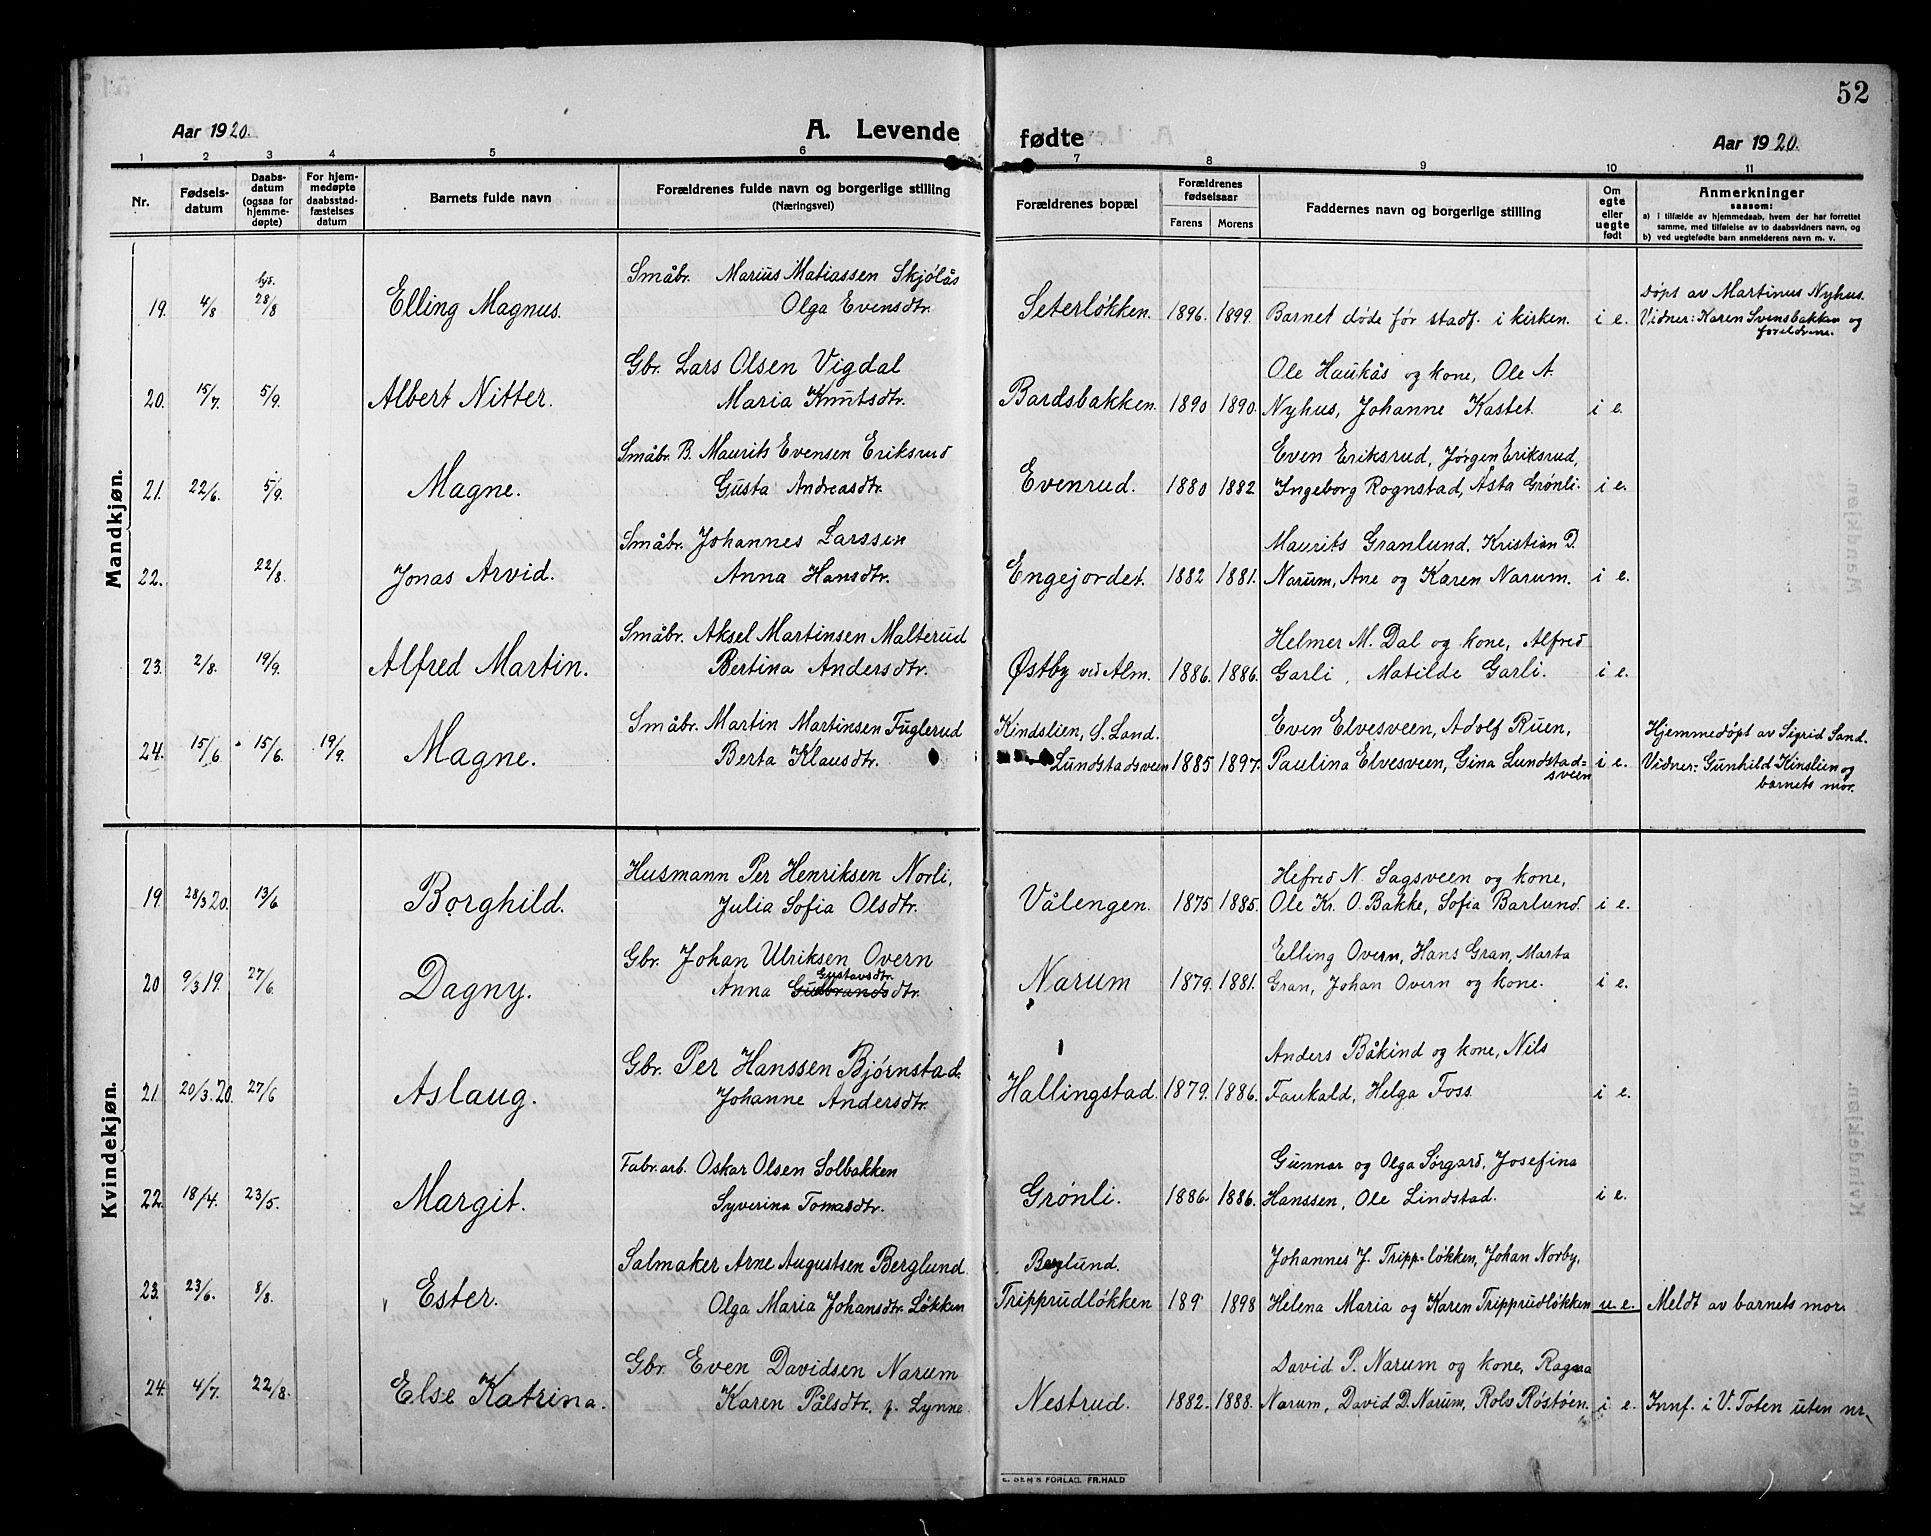 52
Aar 1920.
A. Levende fødte
Aar 1920.
1 2 3 4 5 6 7 8 9 10 11
Nr.
Fødsels-
datum
Daabs-
datum
(ogsaa for
hjemme-
døpte)
For hjem-
medøpte
daabsstad-
fæstelses
datum
Barnets fulde navn
Forældrenes fulde navn og borgerlige stilling
(Næringsvei)
Forældrenes bopæl
Forældrenes
fødselsaar
Farens Morens
Faddernes navn og borgerlige stilling
Om
egte
eller
uegte
født
Anmerkninger
saasom:
a) i tilfælde av hjemmedaab, hvem der har forrettet
samme, med tilføielse av to daabsvidners navn, og
b) ved uegtefødte barn anmelderens navn m. v.
Mandkjøn.
19. 4/8 28/8 Elling Magnus.
Småbr. Marius Matiassen Skjølås
Olga Evensdtr.
Seterløkken. 1896. 1899. Barnet døde før stadf. i kirken. i e.
Døpt av Martinus Nyhus.
Vidner: Karen Svensbakken og
foreldrene.
20. 15/7. 5/9. Albert Nitter.
Gbr. Lars Olsen Vigdal
Maria Knutsdtr.
Bardsbakken. 1890 1890.
Ole Haukås og kone, Ole A.
Nyhus, Johanne Kastet. i e.
21. 22/6. 5/9. Magne.
Småbr. B. Maurits Evensen Eriksrud
Gusta Andreasdtr.
Evenrud. 1880 1882
Even Eriksrud, Jørgen Eriksrud,
Ingeborg Rognstad, Asta Grønli. i e.
22. 22/8. Jonas Arvid.
Småbr. Johannes Larssen
Anna Hansdtr.
Engejordet. 1882 1881.
Maurits Granlund, Kristian D.
Narum, Ane og Karen Narum. i e.
23. 2/8. 19/9. Alfred Martin.
Småbr. Aksel Martinsen Malterud
Bertina Andersdtr.
Østby ved Alm. 1886. 1886.
Helmer M. Dal og kone, Alfred
Garli, Matilde Garli. i e.
24. 15/6 15/6. 19/9. Magne.
Småbr. Martin Martinsen Fuglerud
Berta Klausdtr.
Kindslien, S. Land.
Lundstadsveen 1885 1897.
Even Elvesveen, Adolf Ruen,
Paulina Elvesveen, Gina Lundstad=
sveen i e.
Hjemmedøpt av Sigrid Sand.
Vidner: Gunhild Kinslien og
barnets mor.
Kvindekjøn.
19. 28/3 20. 13/6 Borghild.
Husmann Per Henriksen Norli,
Julia Sofia Olsdtr.
Vålengen. 1875 1885.
Hefred N. Sagsveen og kone,
Ole Kr. O. Bakke, Sofia Barlund. i e.
20 9/3 19. 27/6. Dagny.
Gbr. Johan Ulriksen Overn
Gustavsdtr.
Anna Gulbrandsdtr.
Narum 1879. 1881.
Elling Overn, Hans Gran, Marta
Gran, Johan Overn og kone. i e.
21. 20/3. 20. 27/6 Aslaug.
Gbr. Per Hanssen Bjørnstad.
Johanne Andersdtr.
Hallingstad. 1879. 1886.
Anders Båkind og kone, Nils
Faukald, Helga Foss. i e.
22. 18/4. 23/5. Margit.
Fabr. arb. Oskar Olsen Solbakken
Syverina Tomasdtr.
Grønli. 1886. 1886.
Gunnar og Olga Sørgard, Josefina
Hanssen, Ole Lindstad. i e.
23. 23/6. 8/8. Ester.
Salmaker Arne Augustsen Berglund.
Olga Maria Johansdtr. Løkken
Berglund.
Tripprudløkken 189 1898
Johannes J. Tripp-løkken, Johan Norby,
Helena Maria og Karen Tripprudløkken u e. Meldt av barnets mor.
24. 4/7. 22/8. Else Katrina.
Gbr. Even Davidsen Narum
Karen Pålsdtr. f. Lynne.
Nestrud. 1882. 1888.
David P. Narum og kone, Ragna
Narum, David D. Narum, Rolv Røstøen. i e. Innf. i V. Toten uten nr.
FORLAG. FR. HALD